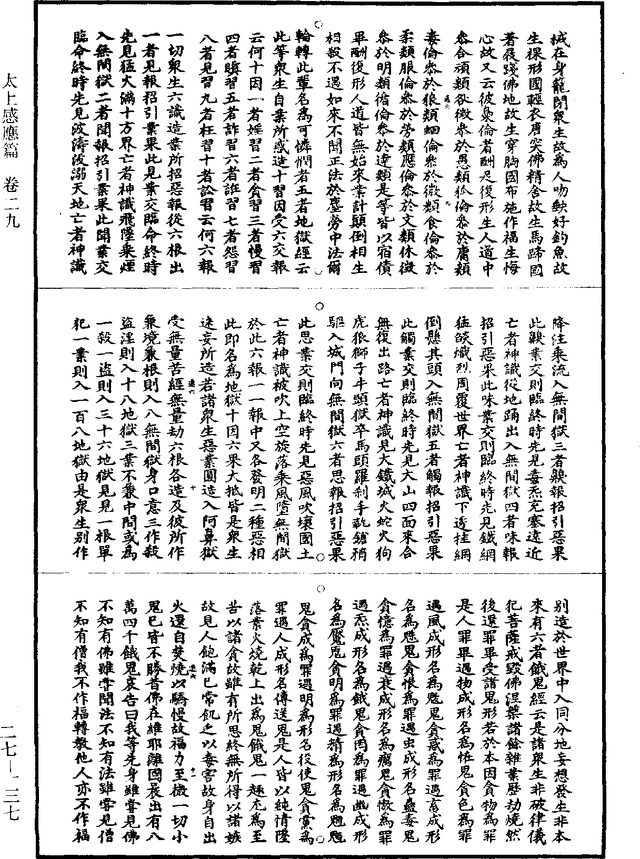 械在身龍閉眾生故為人吻軟好釣魚故
生裸形國輕衣唐突佛精舍故生馬蹄國
著屐踐佛地故生穿胸國布施作福生悔
心故又云彼梟倫者酬足復形生人道中
參合頑類欲微參於愚類狐倫參於庸類
毒倫參於狠類蛔倫參於微類食倫參於
柔類服倫參於勞類應倫參於文類休徵
參於明類循倫參於達類是等皆以宿債
畢酬復形人道皆無始來業計顛倒相生
相殺不遇如來不聞正法於塵勞中法爾
輪轉此輩名為可憐愍者五者地獄經云
此等眾生自業所感造十習因受六交報
云何十因一者婬習二者貪習三者慢習
四者瞋習五者詐習六者誑習七者怨習
八者見習九者枉習十者訟習云何六報
一切眾生六識造業所招惡報從六根出
一者見報招引業果此見業交臨命終時
先見猛火滿十方界亡者神識飛墜乘煙
入無間獄二者聞報招引業果此聞業交
臨命終時先見波濤沒溺天地亡者神識
降注乘流入無間獄三者齅報招引惡果
此齅業交則臨終時先見毒炁充塞遠近
亡者神識從地踊出入無間獄四者味報
招引惡果此味業交則臨終時先見鐵網
猛燄熾烈周覆世界亡者神識下透掛網
倒懸其頭入無間獄五者觸報招引惡果
此觸業交則臨終時先見大山四面來合
無復出路亡者神識見大鐵城火蛇火狗
虎狼獅子牛頭獄卒馬頭羅剎手執鎗矟
驅入城門向無間獄六者思報招引惡果
此思業交則臨終時先見惡風吹壞國土
亡者神識被吹上空旋落乘風墮無間獄
於此六報一一報中又各發明二種惡相
此即名為地獄十因六果大抵皆是眾生
迷妄所造若諸眾生惡業圓造入阿鼻獄
受無量苦經無量劫六根各造及彼所作
兼境兼根則入八無間獄身口意三作殺
盜淫則入十八地獄三業不兼中間或為
一殺一盜則入三十六地獄見見一根單
犯一業則入一百八地獄由是眾生別作
別造於世界中入同分地妄想發生非本
來有六者餓鬼經云是諸眾生非破律儀
犯菩薩戒毀佛涅槃諸餘雜業歷劫燒然
後還罪畢受諸鬼形若於本因貪物為罪
是人罪畢遇物成形名為怪鬼貪色為罪
遇風成形名為魃鬼貪惑為罪遇畜成形
名為魅鬼貪恨為罪遇蟲成形名蠱毒鬼
貪憶為罪遇衰成形名為癘鬼貪慠為罪
遇炁成形名為餓鬼貪罔為罪遇幽成形
名為魘鬼貪明為罪遇精為形名為魍魎
鬼貪成為罪遇明為形名役使鬼貪黨為
罪遇人成形名傳送鬼是人皆以純情墜
落業火燒乾上出為鬼餓鬼一趣尤為至
苦以諸貪故雖有所思終無所得以諸嫉
故見人飽滿已常飢乏以毒害故身自出
火還自焚燒以驕慢故福力至微一切小
鬼已皆不勝昔佛在維耶離國晨出有八
萬四千餓鬼哀告曰我等先身雖嘗見佛
不知有佛雖嘗聞法不知有法雖嘗見僧
不知有僧我不作福轉教他人亦不作福
太上感應篇 卷二九
二七－一三七